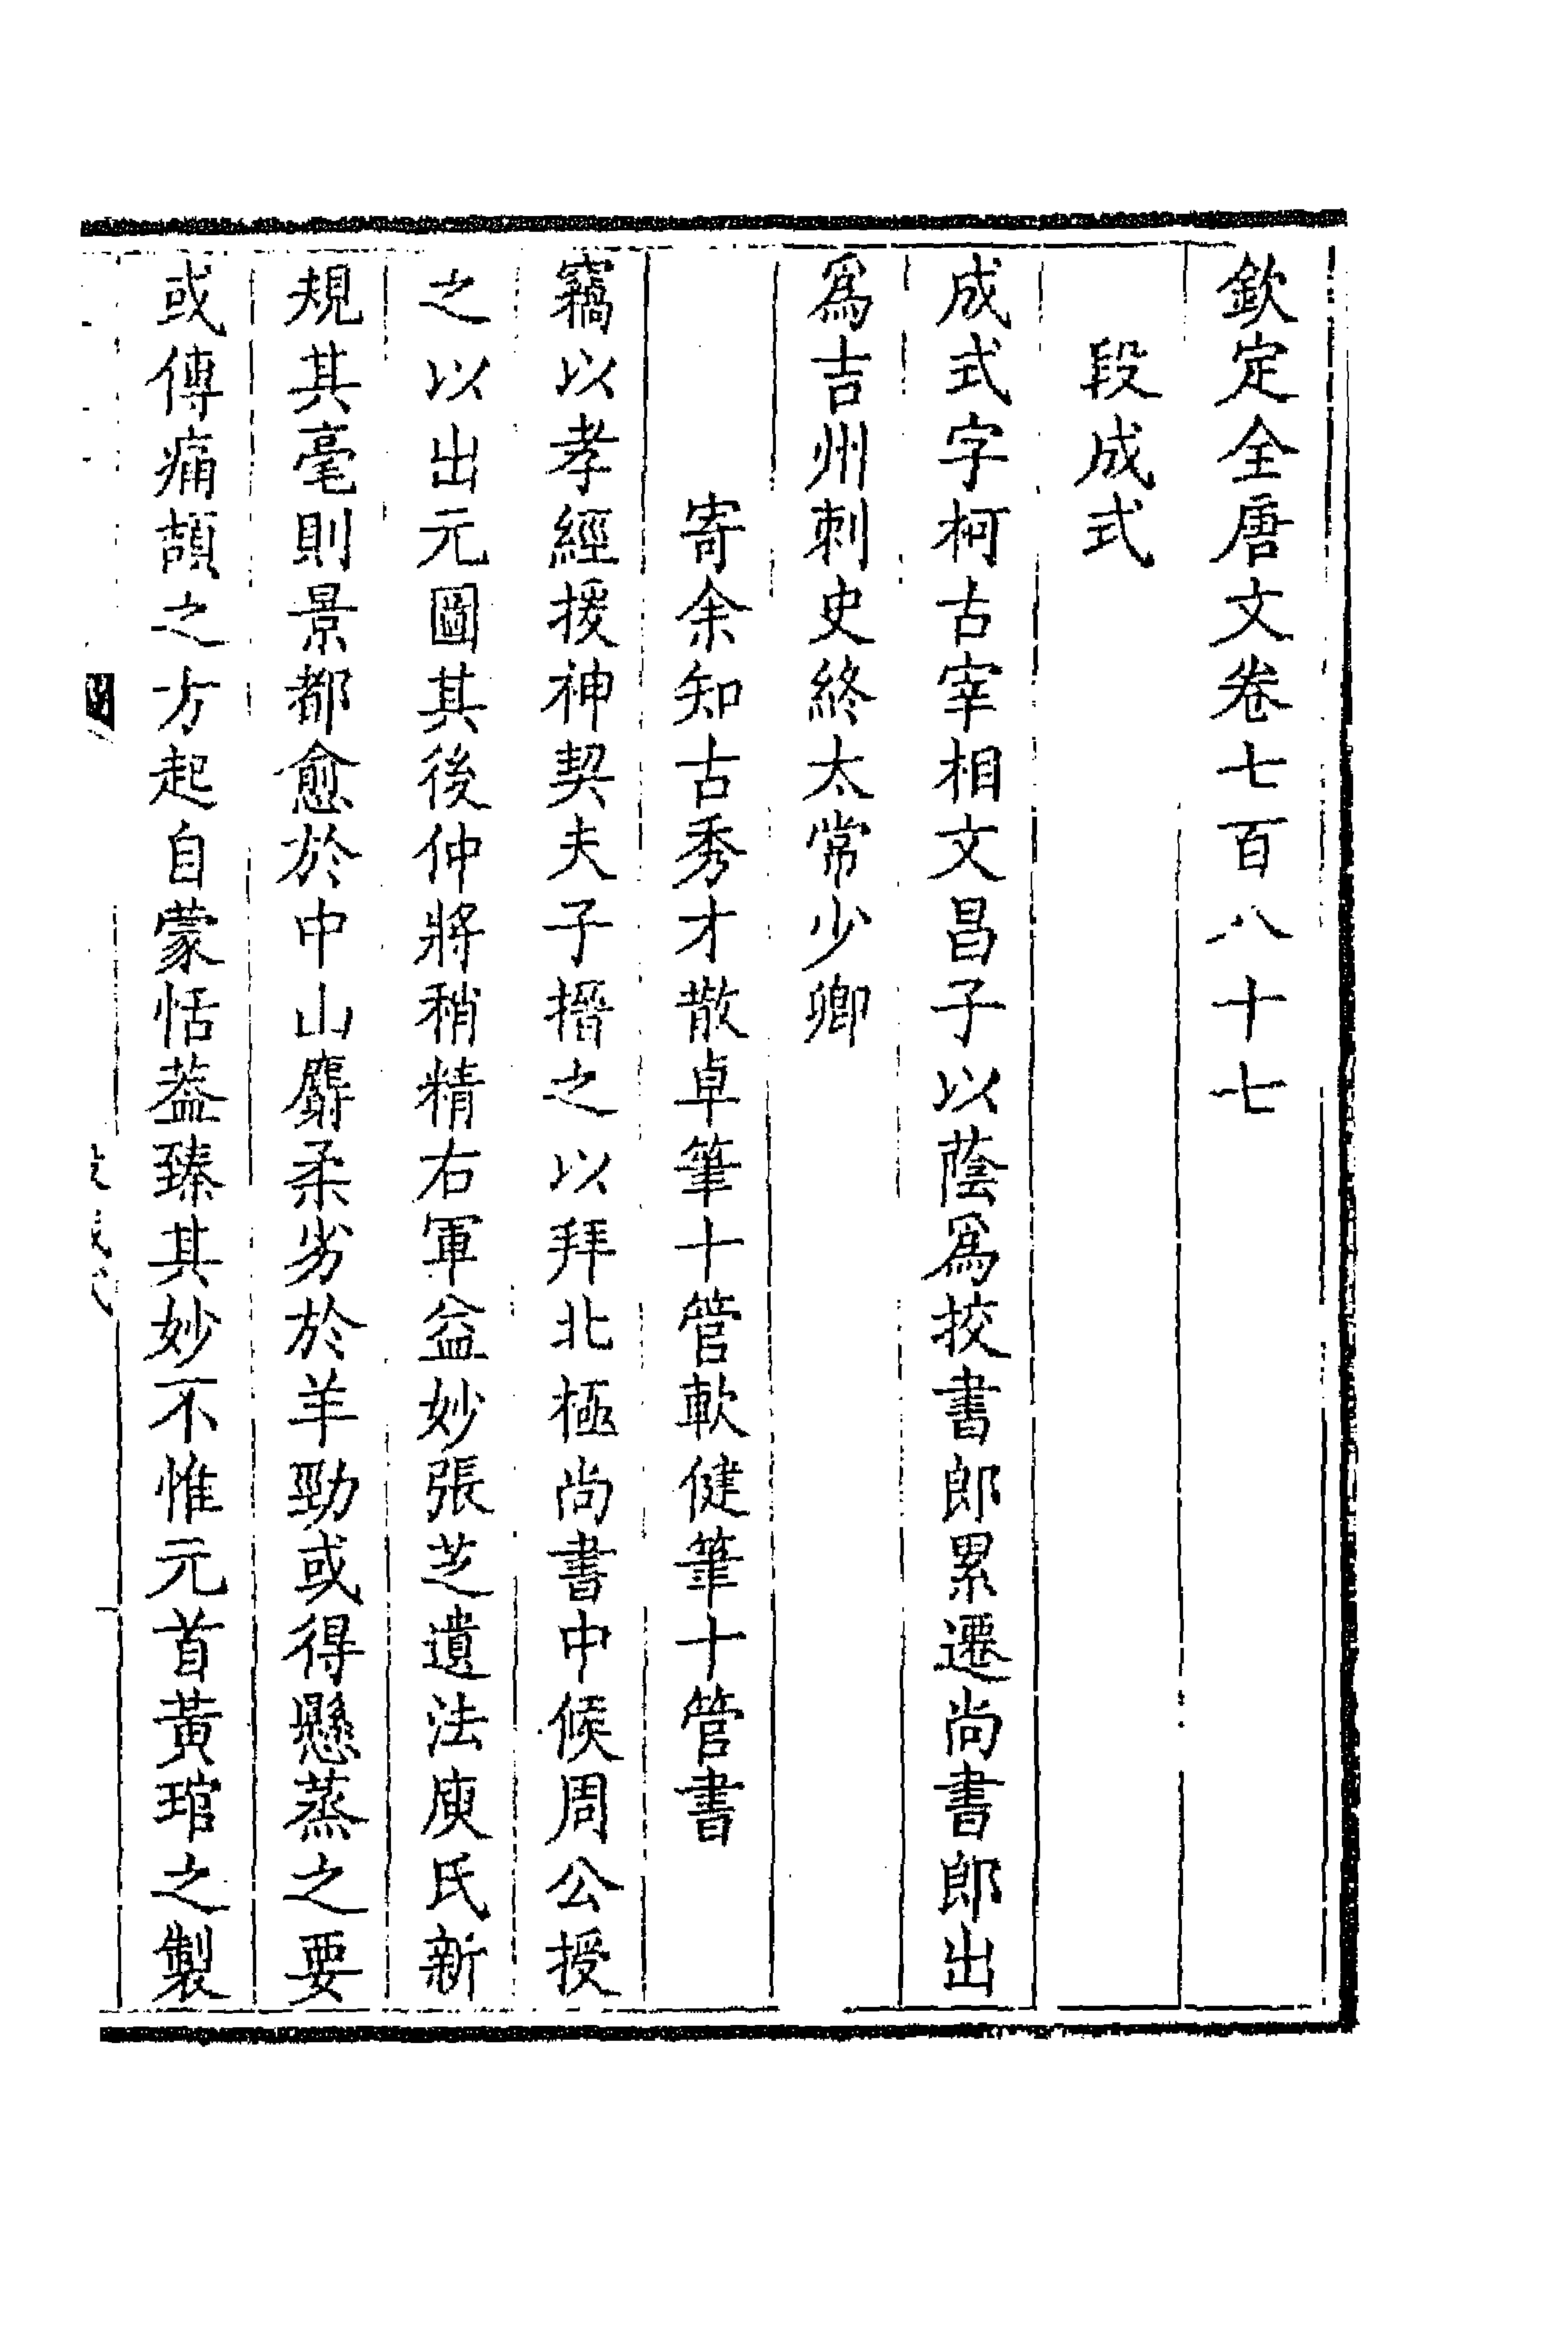 欽定全唐文卷七百八十七
段成式
成式字柯古宰相文昌子以蔭爲挍書郎累遷尚書郎出
爲吉州刺史終太常少卿
寄余知古秀才散卓筆十管軟健筆十管書
竊以孝經援神契夫子搢之以拜北極尚書中候周公授
之以出元圖其後仲將稍精右軍益妙張芝遺法庾氏新
規其毫則景都愈於中山麝柔劣於羊勁或得懸蒸之要
或傳痛頡之方起自蒙恬葢臻其妙不惟元首黃琯之製